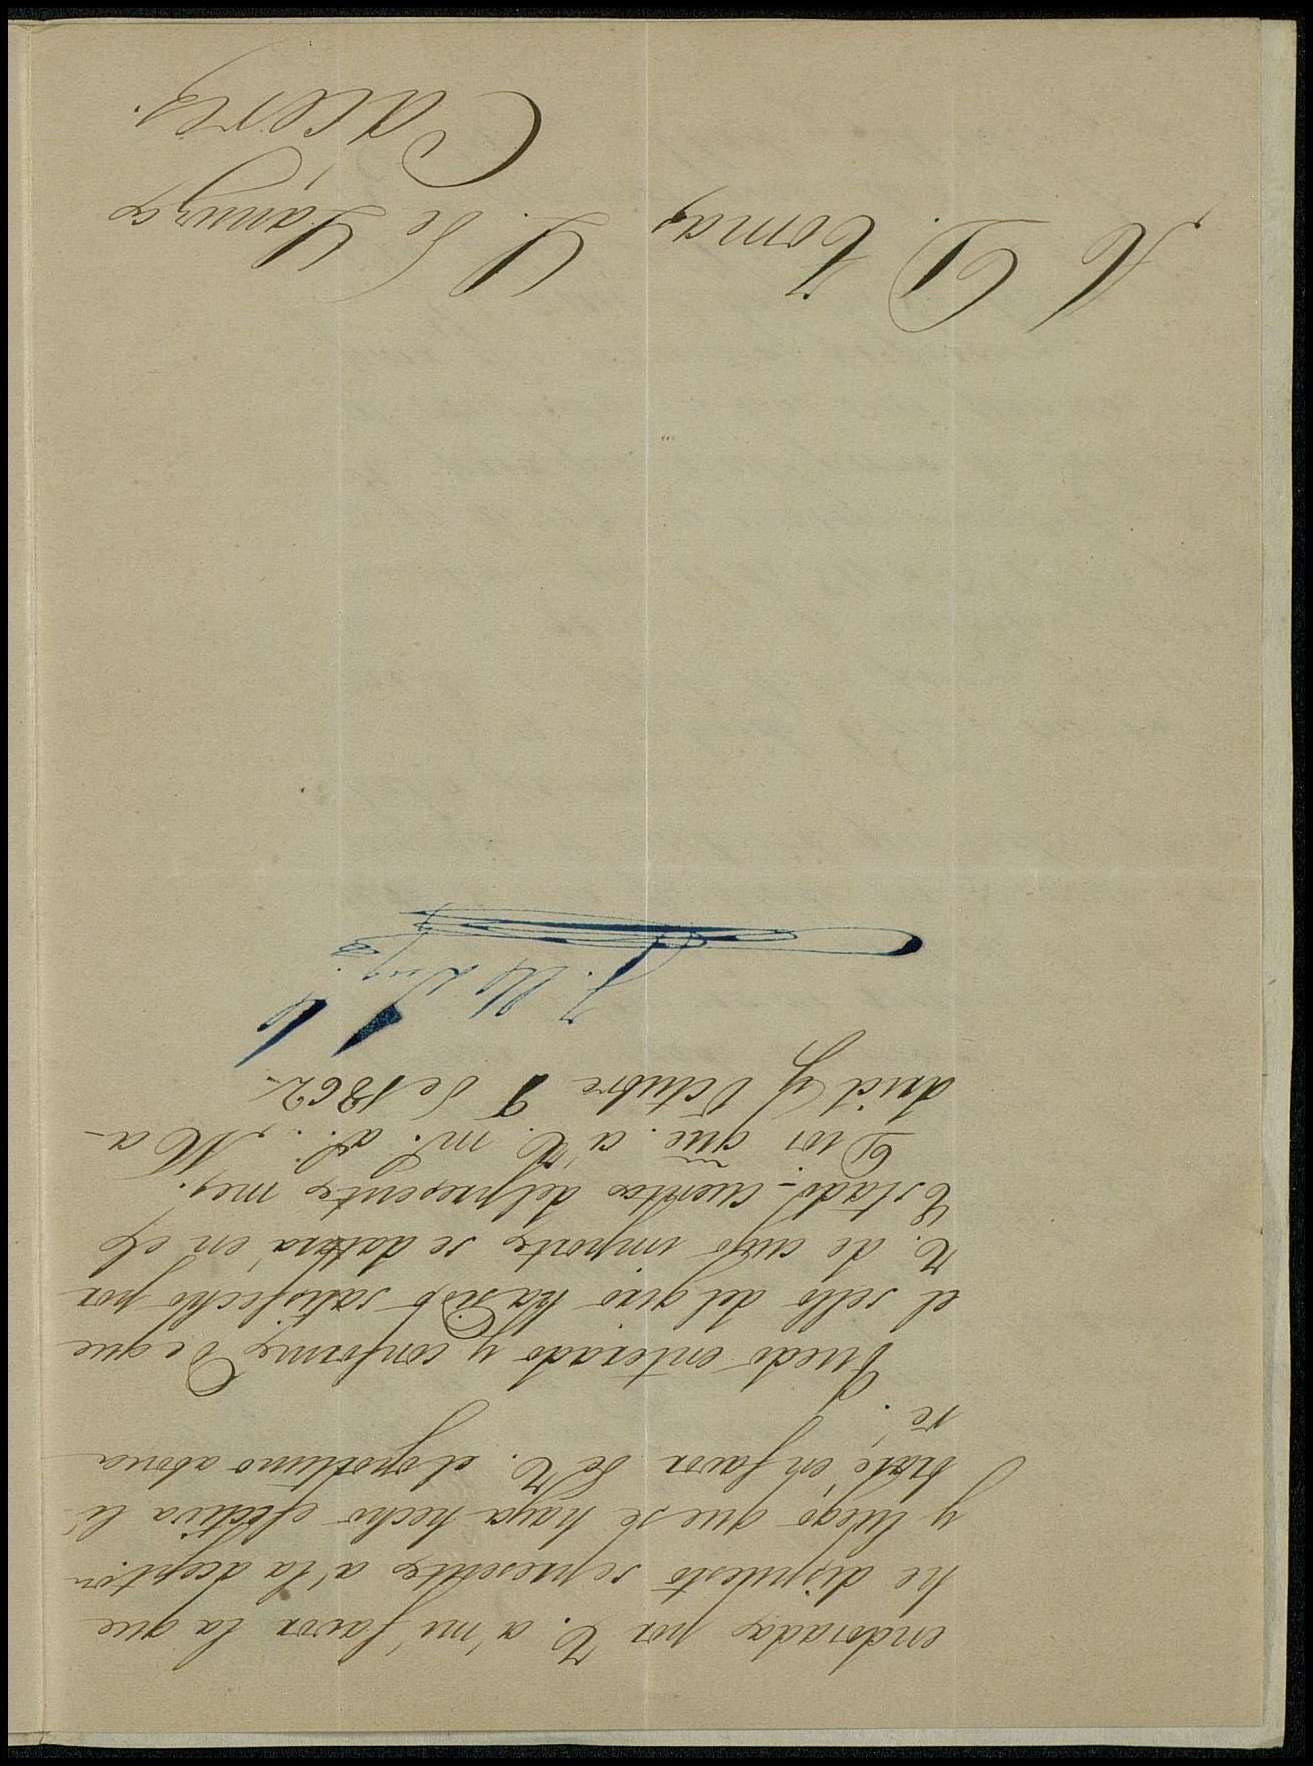 endosada por V. a' mi favor la que
he dispuesto se presente a' la acept.on
y luego que se haya hecho efectiva li-
braré, en favor de V. el gravamen abona
ré.
Quedo enterado y conforme de que
el sello del giro ha sido satisfecho por
V. de cuyo importe se datará en el
Estado-cuenta del presente mes.
Dios gue. a' V. m.s a.s. Ma-
drid y Octubre 9 de 1862.-
S. D. Tomas L. de Sanuza
Caceres.